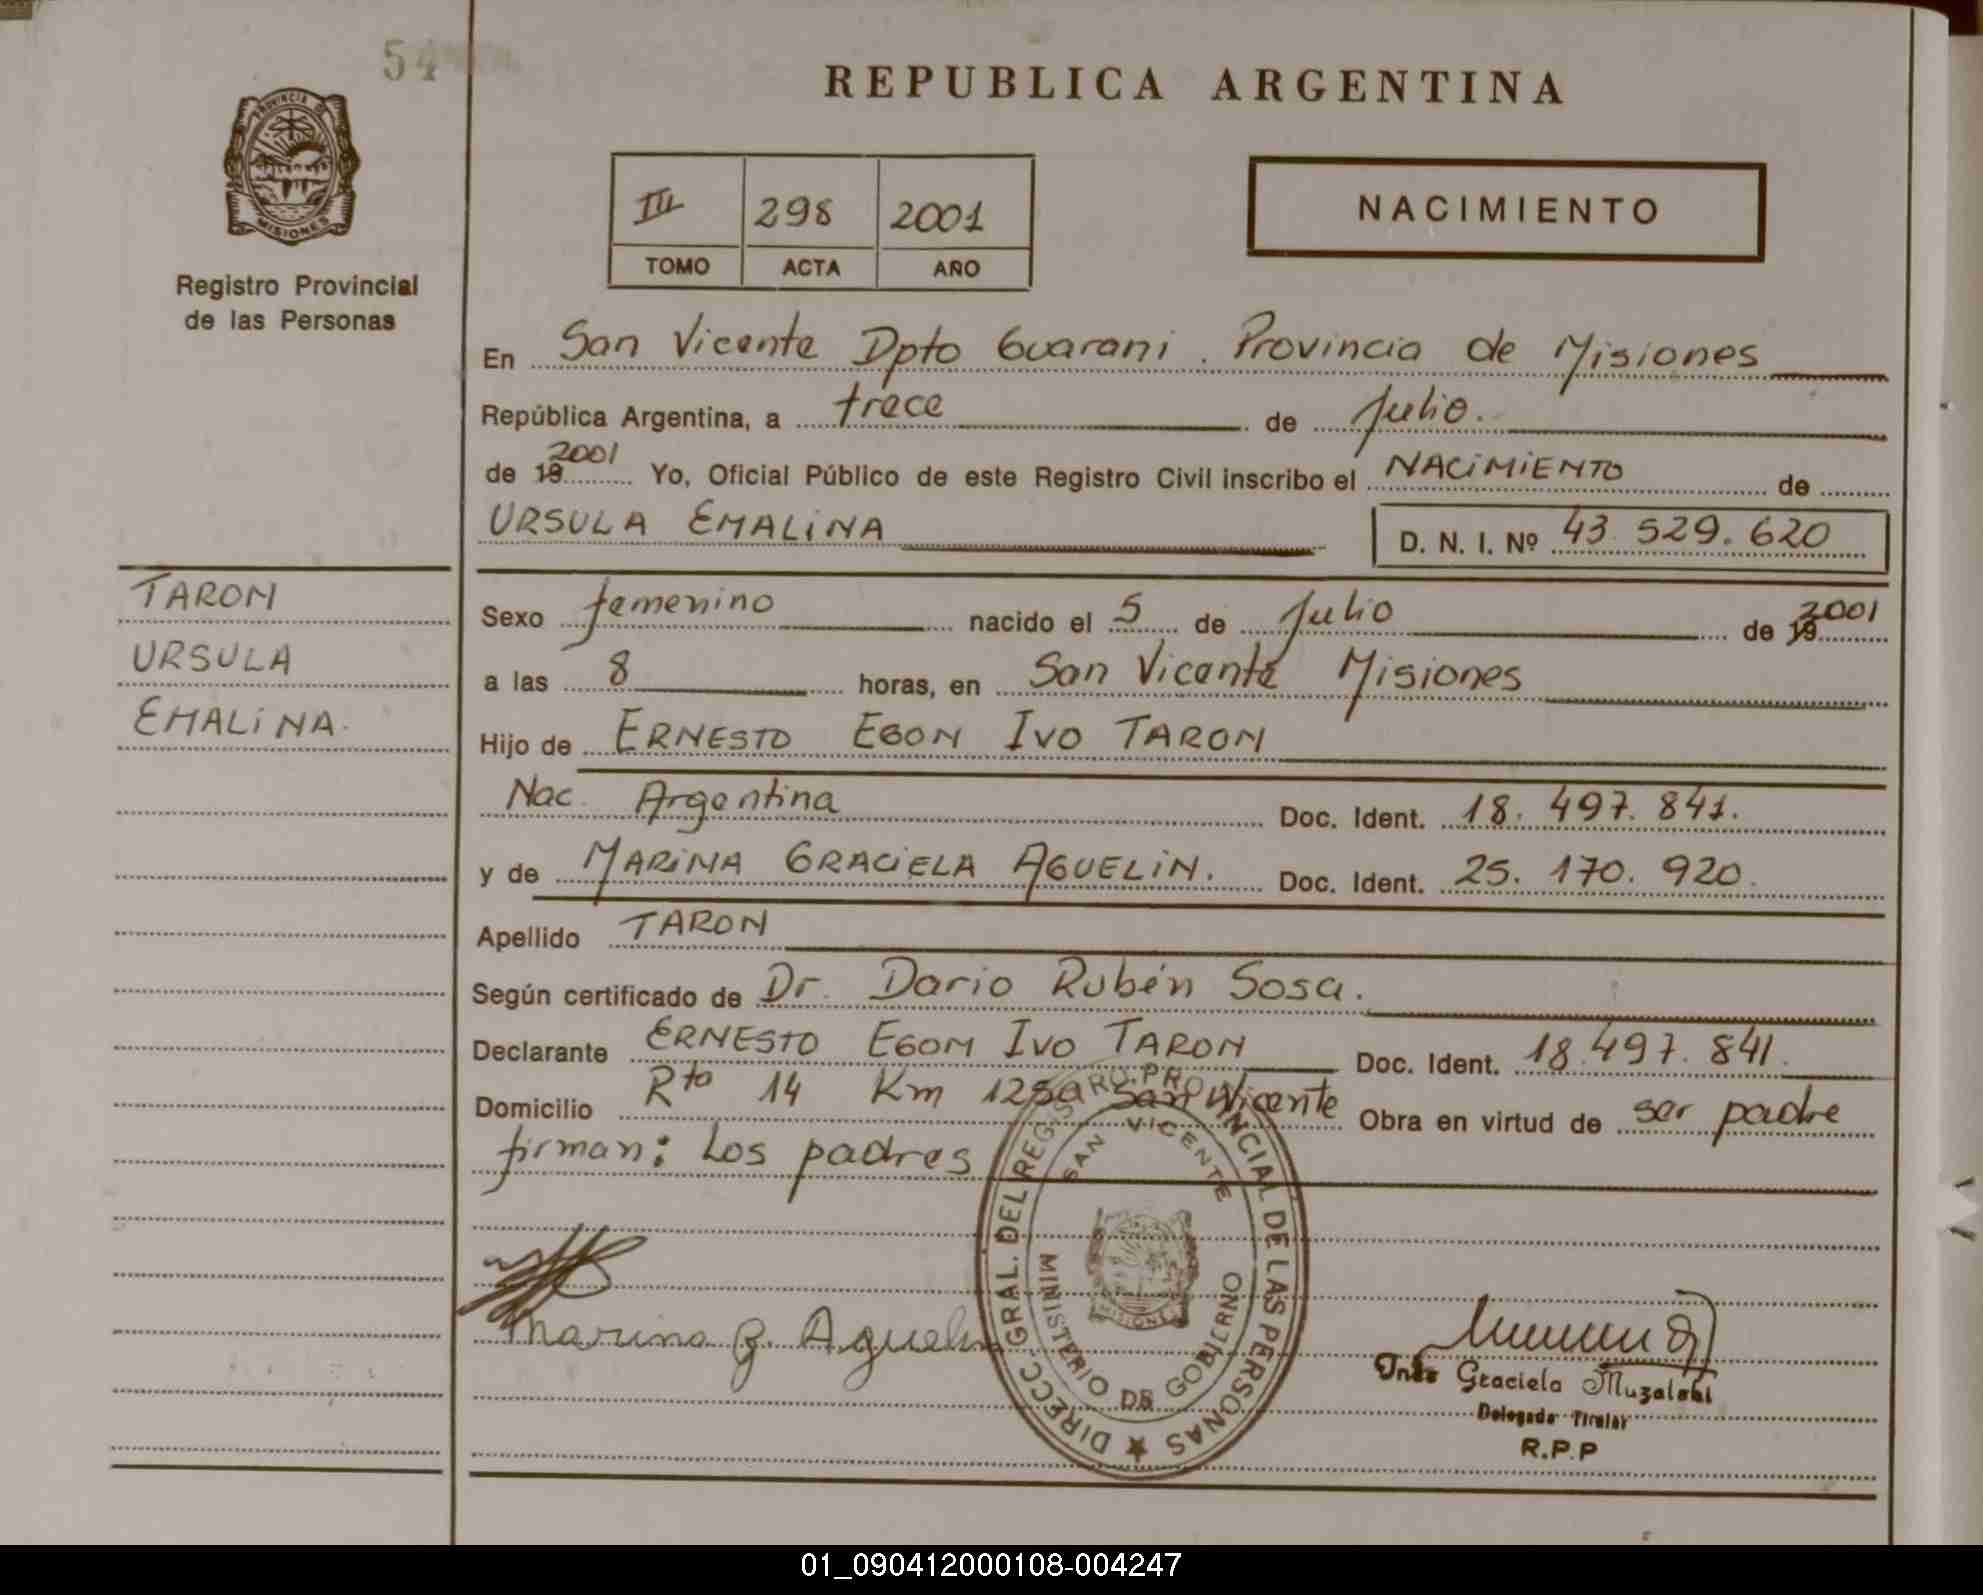 54
REPUBLICA ARGENTINA
PROVINCIA DE
MISIONES
Registro Provincial
de las Personas
III 298 2001
TOMO ACTA AÑO
NACIMIENTO
En San Vicente Dpto Guarani. Provincia de Misiones
República Argentina, a trece de Julio.
de 19 2001 Yo, Oficial Público de este Registro Civil inscribo el NACIMIENTO de
URSULA EMALINA D. N. I. Nº 43.529.620
TARON
URSULA
EMALINA.
Sexo femenino nacido el 5 de Julio de 19 2001
a las 8 horas, en San Vicente Misiones
Hijo de ERNESTO EGON IVO TARON
Nac. Argentina Doc. Ident. 18.497.841.
y de MARINA GRACIELA AGUELIN. Doc. Ident. 25.170.920.
Apellido TARON
Según certificado de Dr. Dario Rubén Sosa.
Declarante ERNESTO EGON IVO TARON Doc. Ident. 18.497.841.
Domicilio Rta 14 Km San Vicente Obra en virtud de ser padre
firman: Los padres
DIRECC. GRAL. DEL REGISTRO PROVINCIAL DE LAS PERSONAS
SAN VICENTE
MISIONES
MINISTERIO DE GOBIERNO
Marina G. Aguelin
Graciela Muzalski
Delegada Titular
R.P.P
01_090412000108-004247